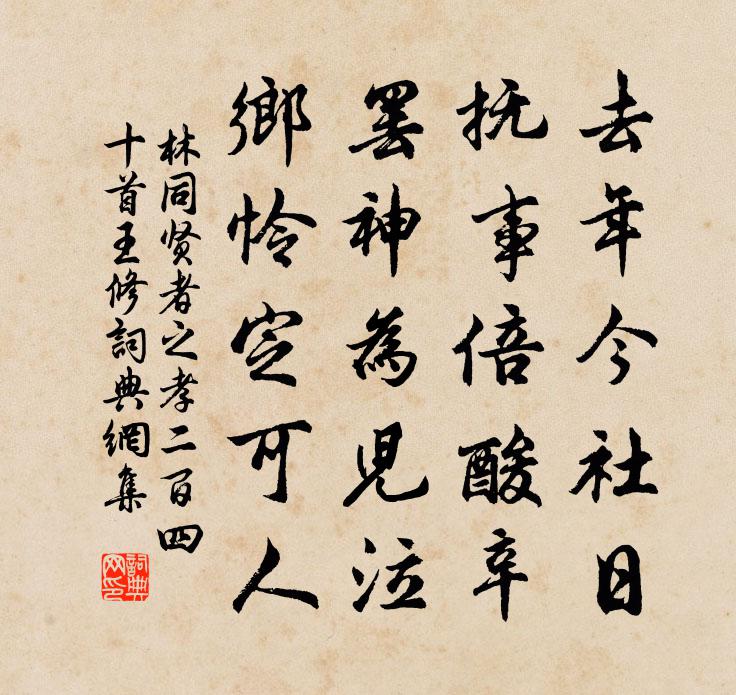 去年今社日
抚事倍酸辛
罢神為児泣
鄉怜定可人
林同贤者之孝二百四
十首王修詞典網集
詞典
网印